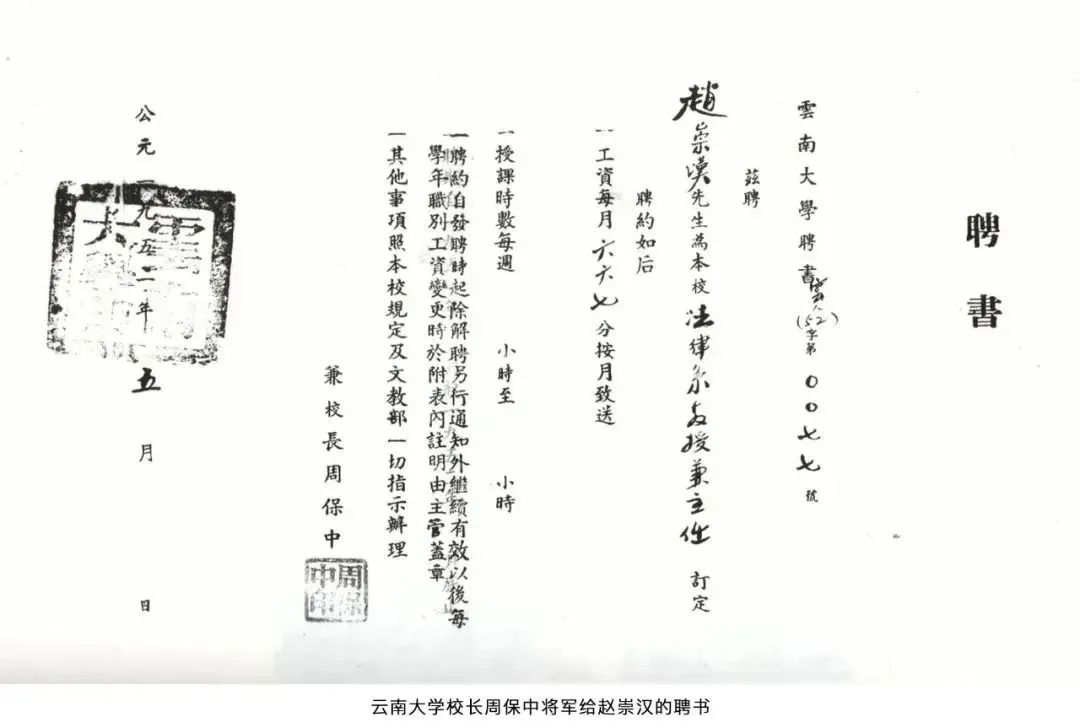 聘書
雲南大學聘書雲人(52)字第00七七號
茲聘
趙崇漢先生為本校法律系教授兼主任 訂定
聘約如后
一工資每月六六七分按月致送
一授課時數每週 小時至 小時
一聘約自發聘時起除解聘另行通知外繼續有效以後每
學年職別工資變更時於附表內註明由主管蓋章
一其他事項照本校規定及文教部一切指示辦理
兼校長周保中
周保中印
公元一九五二年五月 日
云南大学校长周保中将军给赵崇汉的聘书